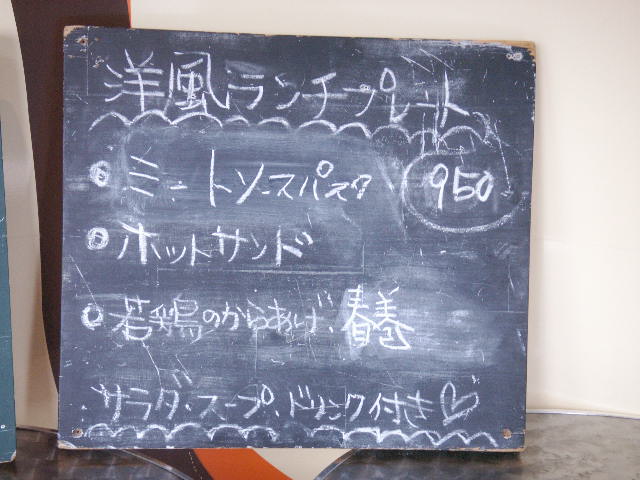 洋風ランチプレート
ミートソースパスタ 950
ホットサンド
若鶏のからあげ 春巻
サラダ・スープ・ドリンク付き♡